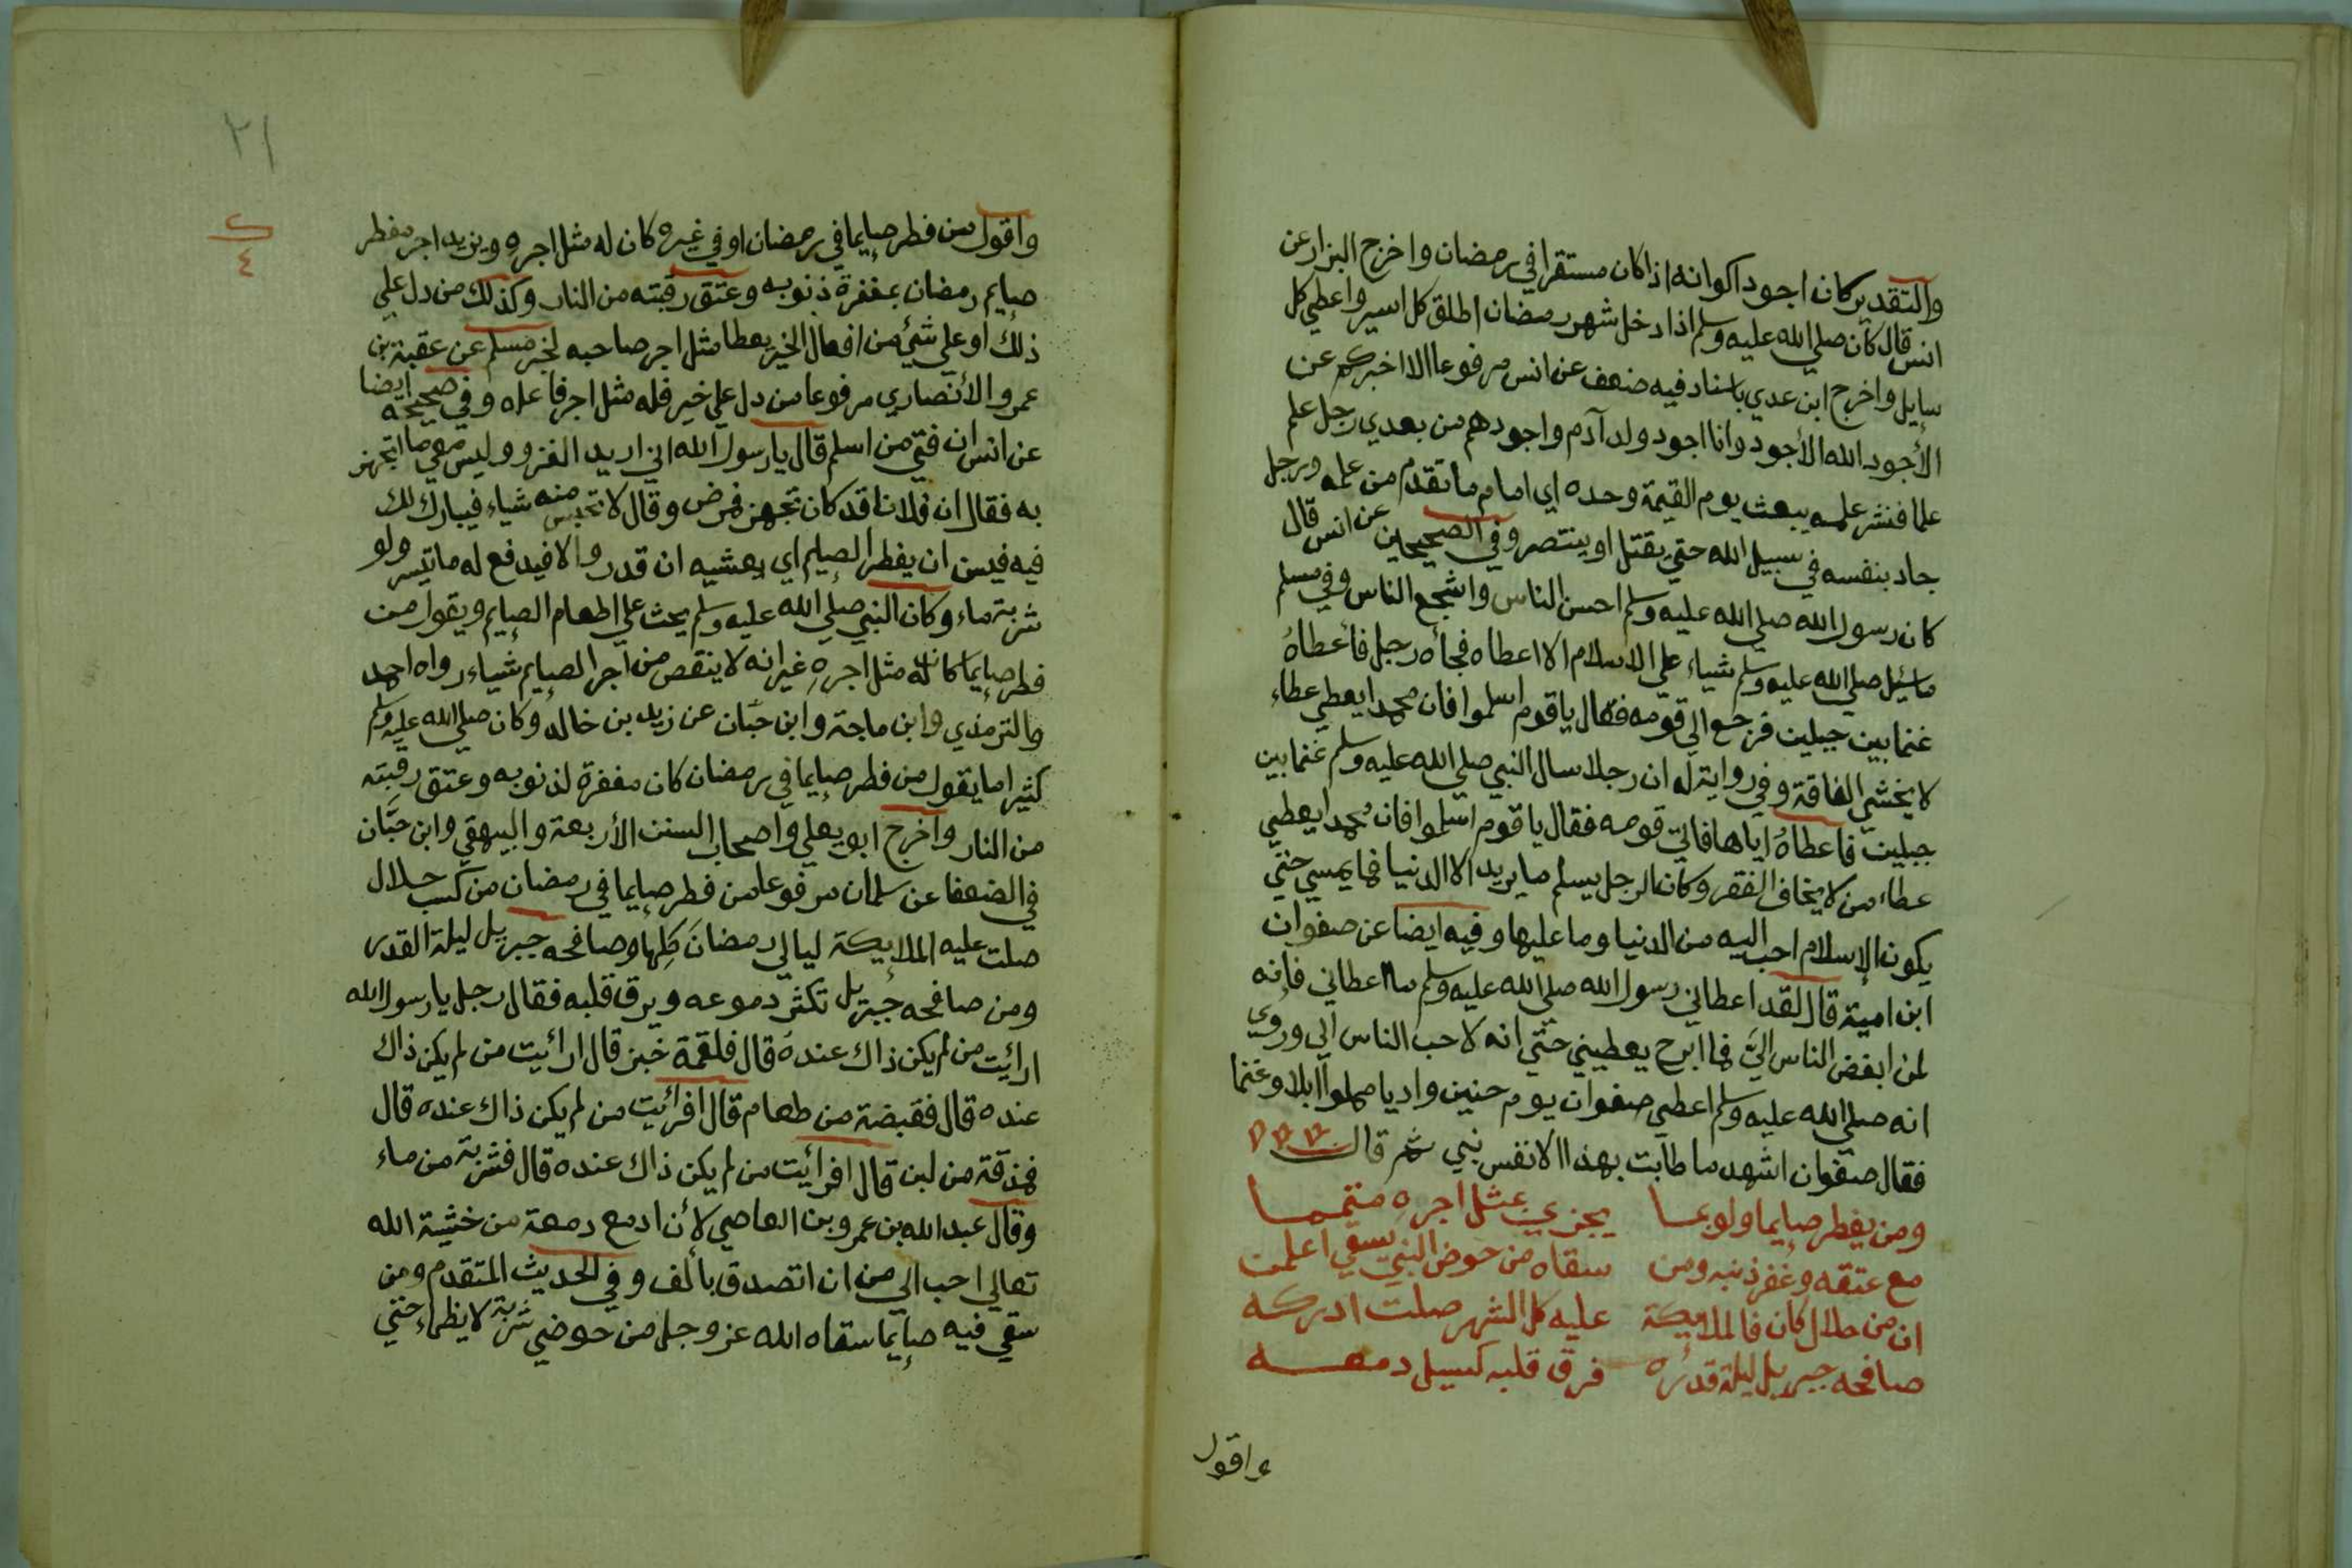 والتقدير كان اجود اكوانه اذا كان مستقرا في رمضان واخرج البزار عن
انس قال كان صلي الله عليه وسلم اذا دخل شهر رمضان اطلق كل اسير واعطي كل
سايل واخرج ابن عدي باسناد فيه ضعف عن انس مرفوعا الا اخبركم عن
الأجود الله الأجود وانا اجود ولد آدم واجودهم من بعدي رجل علم
علما فنشر علمه يبعث يوم القيمة وحده اي امام ما تقدم من علمه ورجل
جاد بنفسه في سبيل الله حتي يقتل او ينتصر وفي الصحيحين عن انس قال
كان رسول الله صلي الله عليه وسلم احسن الناس واشجع الناس وفي مسلم
ما سُئِل صلي الله عليه وسلم شياء علي الاسلام الا اعطاه فجأه رجل فأعطاهُ
غنما بين جبلين فرجع الي قومه فقال يا قوم اسلموا فان محمدا يعطي عطاء
لا يخشي الفاقة وفي رواية له ان رجلا سال النبي صلي الله عليه وسلم غنما بين
جبلين فاعطاهُ اياها فاتي قومه فقال يا قوم اسلموا فان محمدا يعطي
عطاء من لا يخاف الفقر وكان الرجل يسلم ما يريد الا الدنيا فما يمسي حتي
يكون الإسلام احب اليه من الدنيا وما عليها وفيه ايضا عن صفوان
ابن امية قال لقد اعطاني رسول الله صلي الله عليه وسلم ما اعطاني فإنه
لمن ابغض الناس اليَّ فما ابرح يعطيني حتي انه لاحب الناس الي وروي
انه صلي الله عليه وسلم اعطي صفوان يوم حنين واديا مملوا ابلا وغنما
فقال صفوان اشهد ما طابت بهذا الا نفس نبي ثم قال
ومن يفطر صايما ولو بما يجزي بمثل اجره متمما
مع عتقه وغفر ذنبه ومن سقاه من حوض النبي يسقي اعلمن
ان من حلال كان فالملايكة عليه كل الشهر صلت ادركه
صافحه جبريل ليلة قدره فرق قلبه كسيل دمعه
واقول
٢١
٤
واقول من فطر صايما في رمضان او في غيره كان له مثل اجره ويزيد اجر مفطر
صايم رمضان بمغفرة ذنوبه وعتق رقبته من النار وكذلك من دل علي
ذلك او علي شيء من افعال الخير يعطا مثل اجر صاحبه لخبر مسلم عن عقبة بن
عمرو الأنصاري مرفوعا من دل علي خير فله مثل اجر فاعله وفي صحيحه ايضا
عن انس ان فتي من اسلم قال يا رسول الله اني اريد الغزو وليس معي ما اتجهز
به فقال ان فلانا قد كان تجهز فمرض وقال لا تحبس منه شياء فيبارك لك
فيه فيسن ان يفطر الصايم اي يعشيه ان قدر والا فيدفع له ما تيسر ولو
شربة ماء وكان النبي صلي الله عليه وسلم يحث علي اطعام الصايم ويقول من
فطر صايما كان له مثل اجرهِ غير انه لا ينقص من اجر الصايم شياء رواه احمد
والترمذي وابن ماجة وابن حبّان عن زيد بن خالد وكان صلي الله عليه وسلم
كثيرا ما يقول من فطر صايما في رمضان كان مغفرة لذنوبه وعتق رقبته
من النار واخرج ابو يعلي واصحاب السنن الأربعة والبيهقي وابن حبَّان
في الضعفا عن سلمان مرفوعا من فطر صايما في رمضان من كسب حلال
صلت عليه الملايكة ليالي رمضان كلها وصافحه جبريل ليلة القدر
ومن صافحه جبريل تكثر دموعه ويرق قلبه فقال رجل يا رسول الله
ارائيت من لم يكن ذاك عندهُ قال فلقمة خبز قال ارائيت من لم يكن ذاك
عنده قال فقبضة من طعام قال افرائيت من لم يكن ذاك عنده قال
فمذقة من لبن قال افرائيت من لم يكن ذاك عنده قال فشربة من ماء
وقال عبد الله بن عمرو بن العاصي لأن ادمع دمعة من خشية الله
تعالي احب الي من ان اتصدق بألف وفي الحديث المتقدم ومن
سقي فيه صايما سقاه الله عز وجل من حوضي شربة لا يظماء حتي